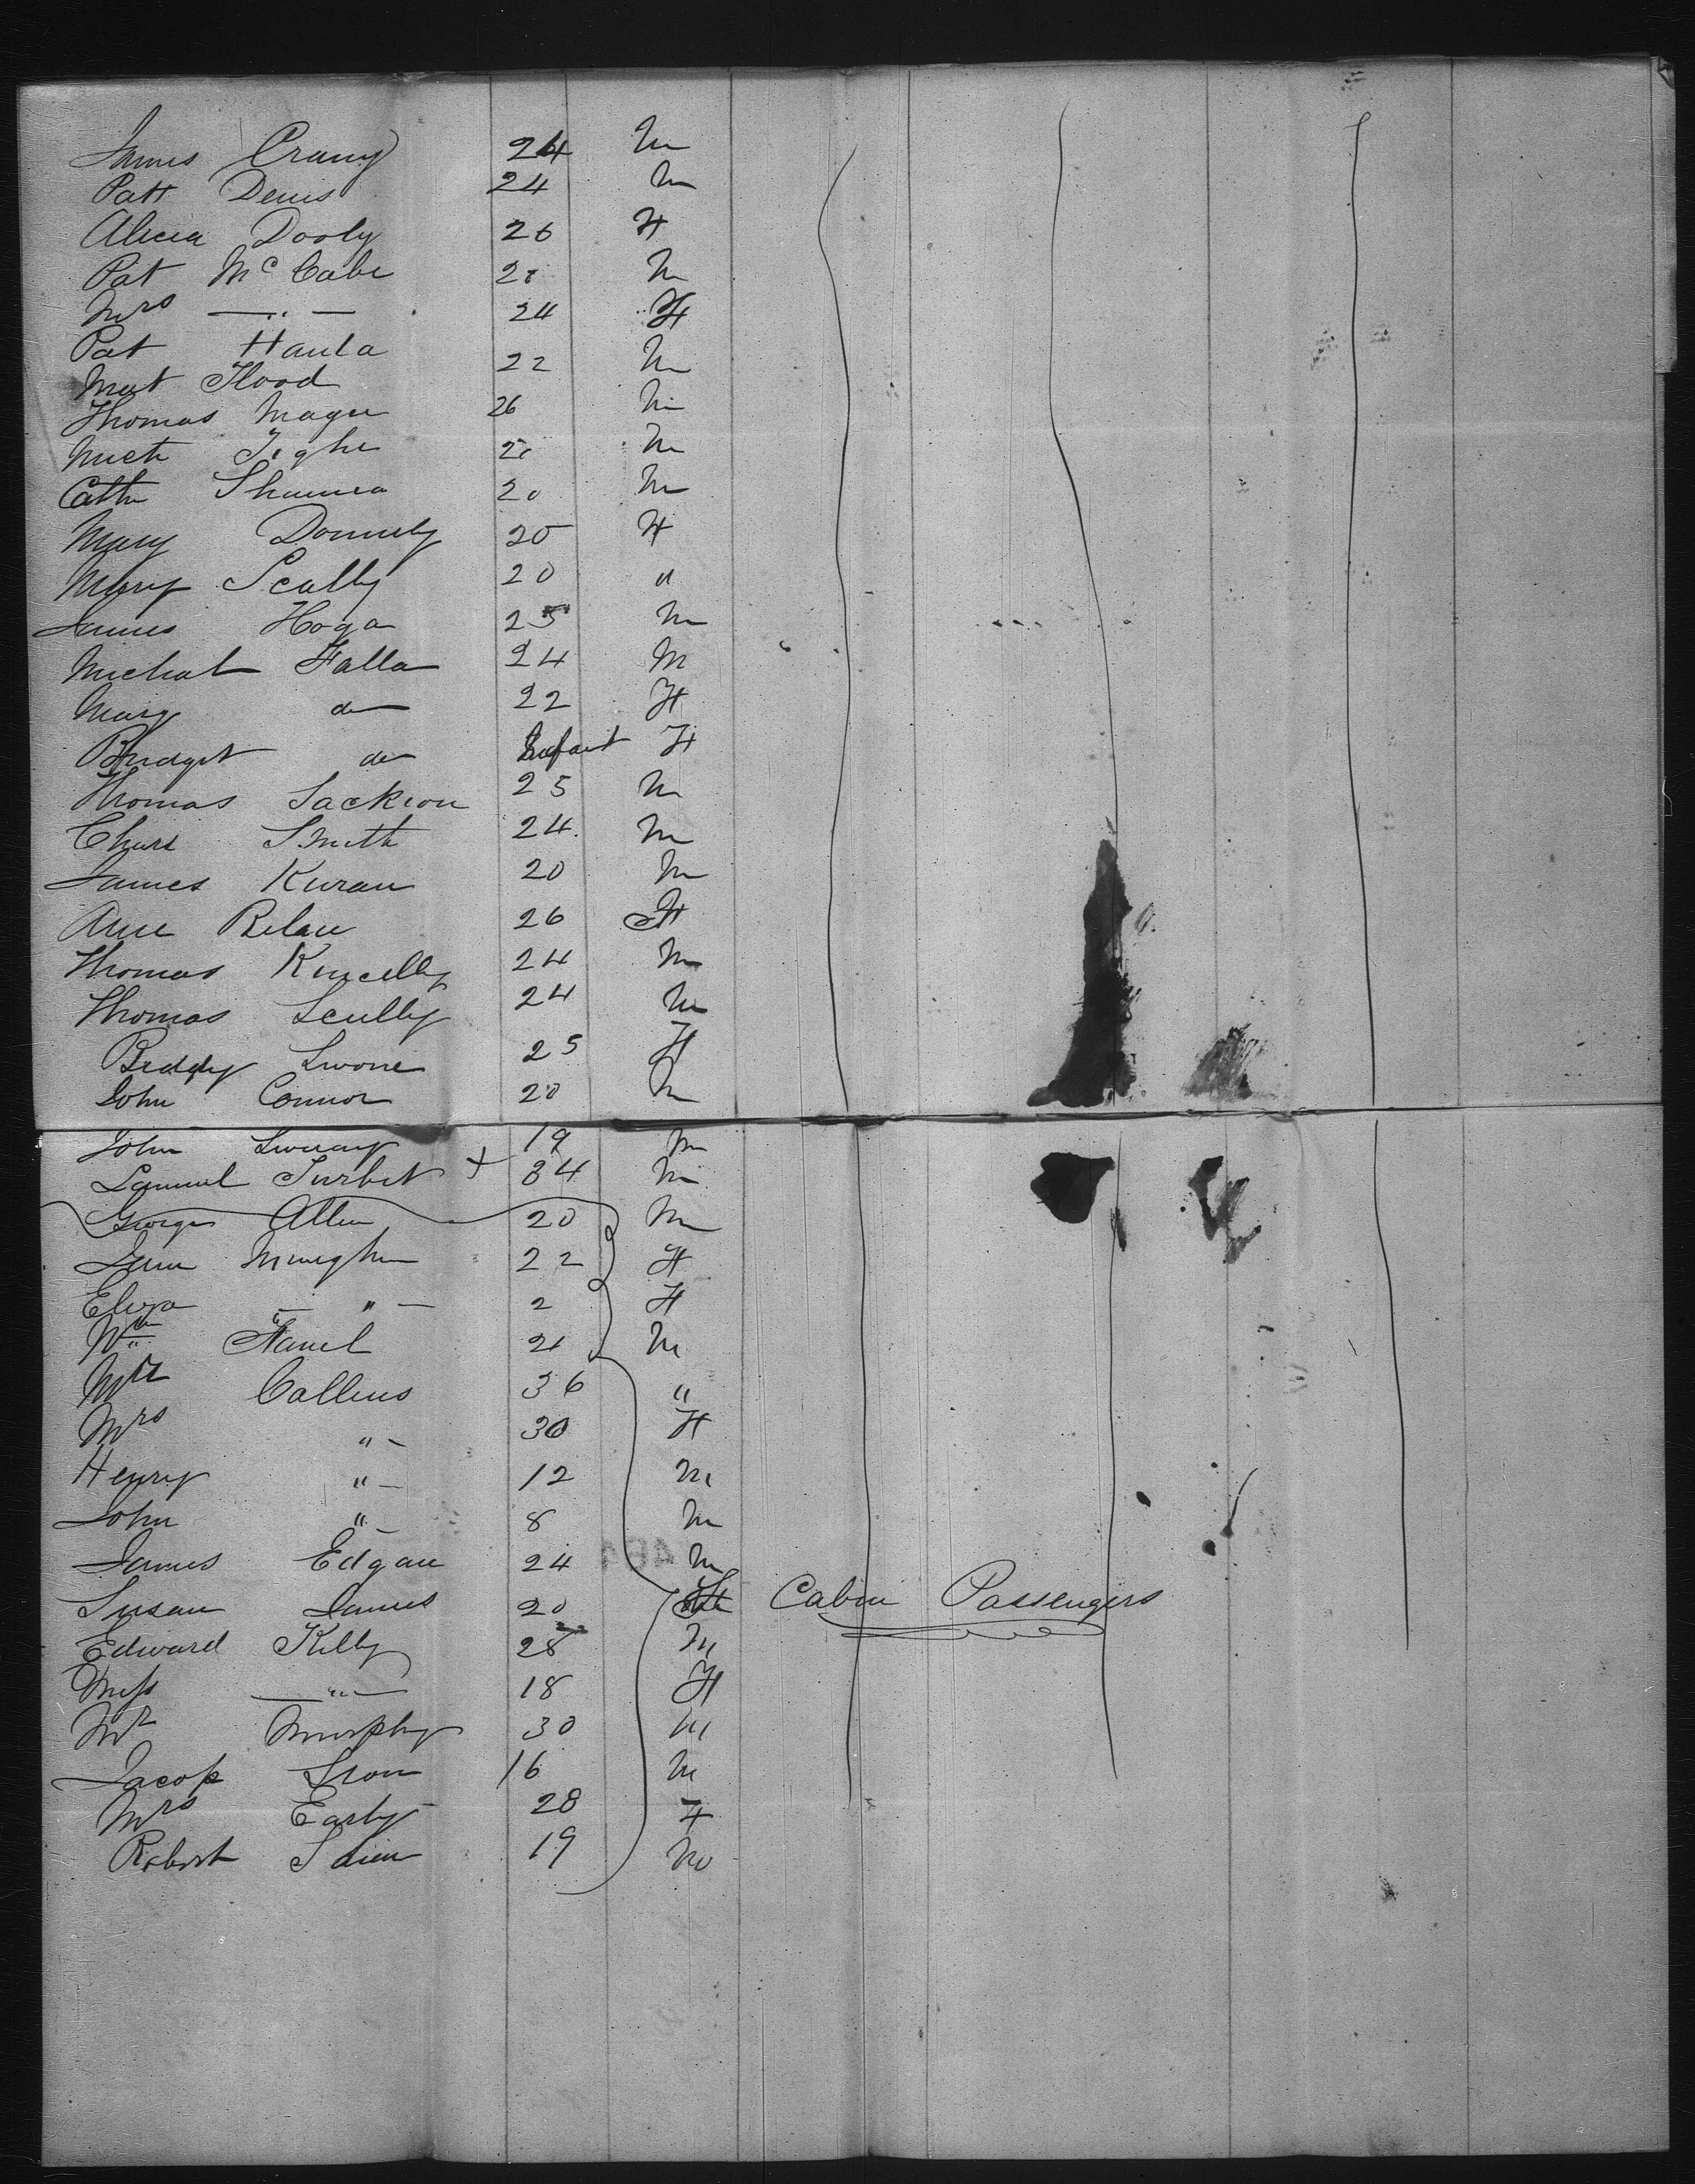 James Crany 24 M
Patt Denis 24 M
Alicia Dooly 26 F
Pat McCabe 2 M
Mrs —"— 24 F
Pat Hanla 22 M
Mat Flood
Thomas Magee 26 M
Mich Tighe 2 M
Cath Shannea 20 M
Mary Donnely 20 F
Mary Scally 20 "
James Hoga 25 M
Michal Falla 24 M
Mary do 22 F
Bridget do Infant F
Thomas Jackson 25 M
Chars Smith 24 M
James Kuran 20 M
Ann 26 F
Thomas Kincelly 24 M
Thomas Scully 24 M
Biddy 25 F
John Connor 20 M
John 19 M
Samuel Turbit + 34 M
George Allen 20 M
Jane 22 F
Eliza — " — 2 F
Wm Farrel 21 M
Mr Collins 36 "
Mrs " - 30 F
Henry " - 12 M
John " - 8 M
James Edgar 24 M
Susan James 20 F Cabin Passengers
Edward Kelly 28 M
Miss —"— 18 F
Mr Murphy 30 M
Jacop 16 M
Mrs Early 28 F
Robert 19 M